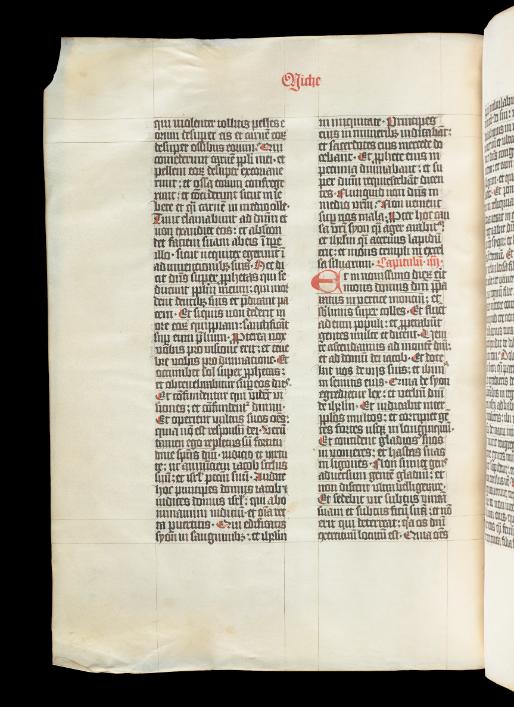 Miche
qui violenter tollitis pelles e
orum desuper eis et carnē eoꝝ
desuper ossibus eorum. Qui
comederunt carnem ppli mei. et
pellem eoꝝ desuper excoriaue
runt: et ossa eorum confrege
runt: et conciderunt sicut in le
bete et qͥ carnē in medio olle.
Tunc clamabunt ad dnm et
non exaudiet eos: et abscon
det faciem suam ab eis ī tpr
illo. sicut nequiter egerunt ī
ad inuentionibꝫ suis. Hec di
cit dns super pphetas qui se
ducunt pplm meum: qui mor
dent dentibꝫ suis et predicant pa
cem. Et si quis non dederit in
ore eoꝝ quippiam: sanctificāt
sup eum plium. Pterea nox
vobis pro visione erit: et tene
bre vobis pro diuinatione. Et
occumbet sol super pphetas:
et obtenebrabitur sup eos dies.
Et confundentur qui vident vi
siones: et confundentur diuini.
Et operient vultus suos oēs:
quia nō est responsū dei. Verū
tamen ego repletus sū fortitu
dine spūs dni. iudicio et virtu
te: ut annūciem iacob scelus
suū: et isrl petm suū. Audite
hoc principes domus iacob: et
iudices domus isrl: qui abo
minamini iudiciū: et oīa rec
ta puertitis. Qui edificatis
syon in sanguinibꝫ: et ihrlm
in iniquitate. Principes
eius in muneribꝫ iudicabāt:
et sacerdotes eius mercede do
cebant. Et pphete eius in
pecunia diuinabant: et su
per dnm requiescebant dicen
tes. Nunquid non dns in
medio nrm: Non venient
sup nos mala. Propter hoc cau
sa vrī syon qͥ ager arabit᷑:
et ihrlm qͥ aceruus lapidū
erit: et mons templi in excel
sa siluarum. Capitulū. iiij.
Et in nouissimo dierꝫ erit
mons domus dni ppa
ratus in vertice montiū: et
sublimis super colles. Et fluēt
ad eum populi: et pperabunt
gentes multe et dicent. Veni
te ascendamus ad montē dni:
et ad domū dei iacob. Et doce
bit nos de vijs suis: et ibimꝰ
in semitis eius. Quia de syon
egredietur lex: et verbū dni
de ihrlm. Et iudicabit inter
pplos multos: et corripiet gē
tes fortes usqꝫ in longinquū.
Et concident gladios suos
in vomeres: et hastas suas
in ligones. Non sumet gens
aduersum gentē gladiū: et
non discent ultra belligerare.
Et sedebit vir subtus vineā
suam et subtus ficū suā: et nō
erit qui deterreat: qͥa os dnī
exercituū locutū est. Quia oēs